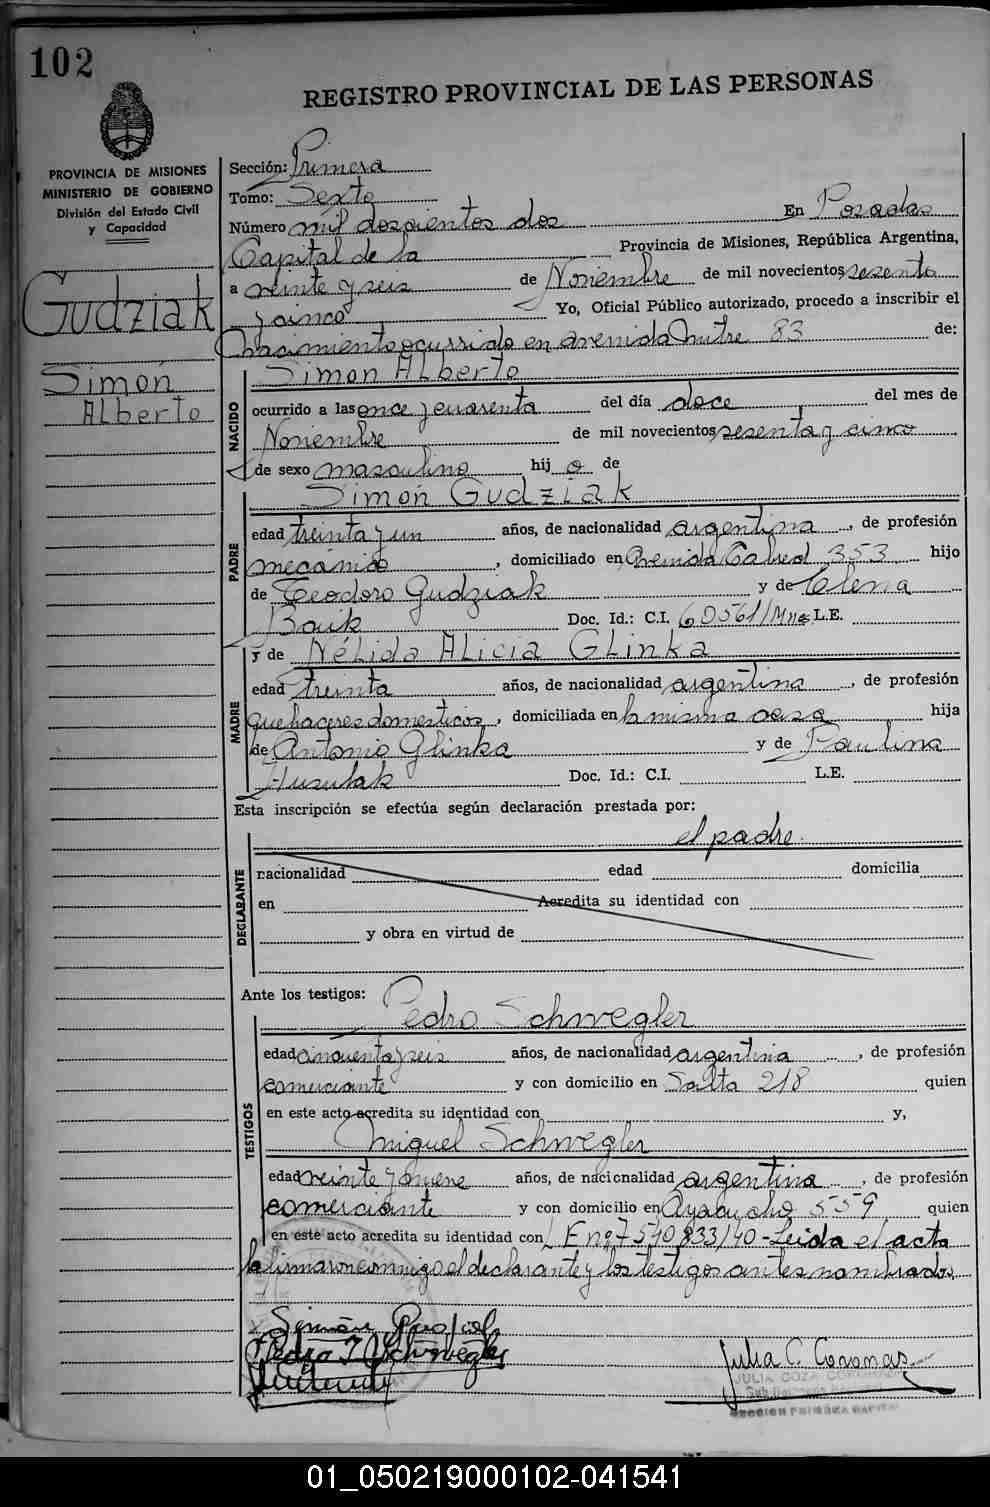 102
REGISTRO PROVINCIAL DE LAS PERSONAS
PROVINCIA DE MISIONES
MINISTERIO DE GOBIERNO
División del Estado Civil
y Capacidad
Gudziak
Simón
Alberto
Sección: Primera
Tomo: Sexto
Número mil doscientos dos En Posadas
Capital de la Provincia de Misiones, República Argentina,
a veinte y seis de Noviembre de mil novecientos sesenta
y cinco Yo, Oficial Público autorizado, procedo a inscribir el
nacimiento ocurrido en avenida Mitre 83 de:
NACIDO
Simon Alberto
ocurrido a las once y cuarenta del día doce del mes de
Noviembre de mil novecientos sesenta y cinco
de sexo masculino hij o de
PADRE
Simón Gudziak
edad treinta y un años, de nacionalidad argentina, de profesión
mecánico, domiciliado en Avenida Cabred 353 hijo
de Teodoro Gudziak y de Elena
Bouk Doc. Id.: C.I. 60561/Mnes L.E.
y de Nélida Alicia Glinka
MADRE
edad treinta años, de nacionalidad argentina, de profesión
quehaceres domesticos, domiciliada en la misma casa hija
de Antonio Glinka y de Paulina
Doc. Id.: C.I. L.E.
Esta inscripción se efectúa según declaración prestada por:
el padre.
DECLARANTE
nacionalidad edad domicilia
en Acredita su identidad con
y obra en virtud de
Ante los testigos: Pedro Schwegler
TESTIGOS
edad cincuenta y seis años, de nacionalidad argentina, de profesión
comerciante y con domicilio en Salta 218 quien
en este acto acredita su identidad con y,
Miguel Schwegler
edad veinte y nueve años, de nacionalidad argentina, de profesión
comerciante y con domicilio en Ayacucho 559 quien
en este acto acredita su identidad con L E nº 7540833/40 - Leida el acta
la firmaron conmigo el declarante y los testigos antes nombrados
Simón
Pedro J Schwegler
Julia C. Coronas
SECCION PRIMERA CAPITAL
01_050219000102-041541